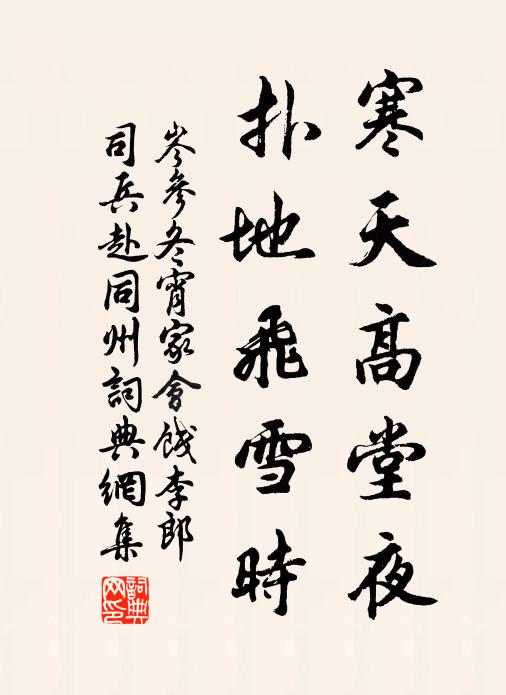 寒天高堂夜
扑地飛雪時
岑參冬宵家會餞李郎
司兵赴同州詞典網集
詞典網印